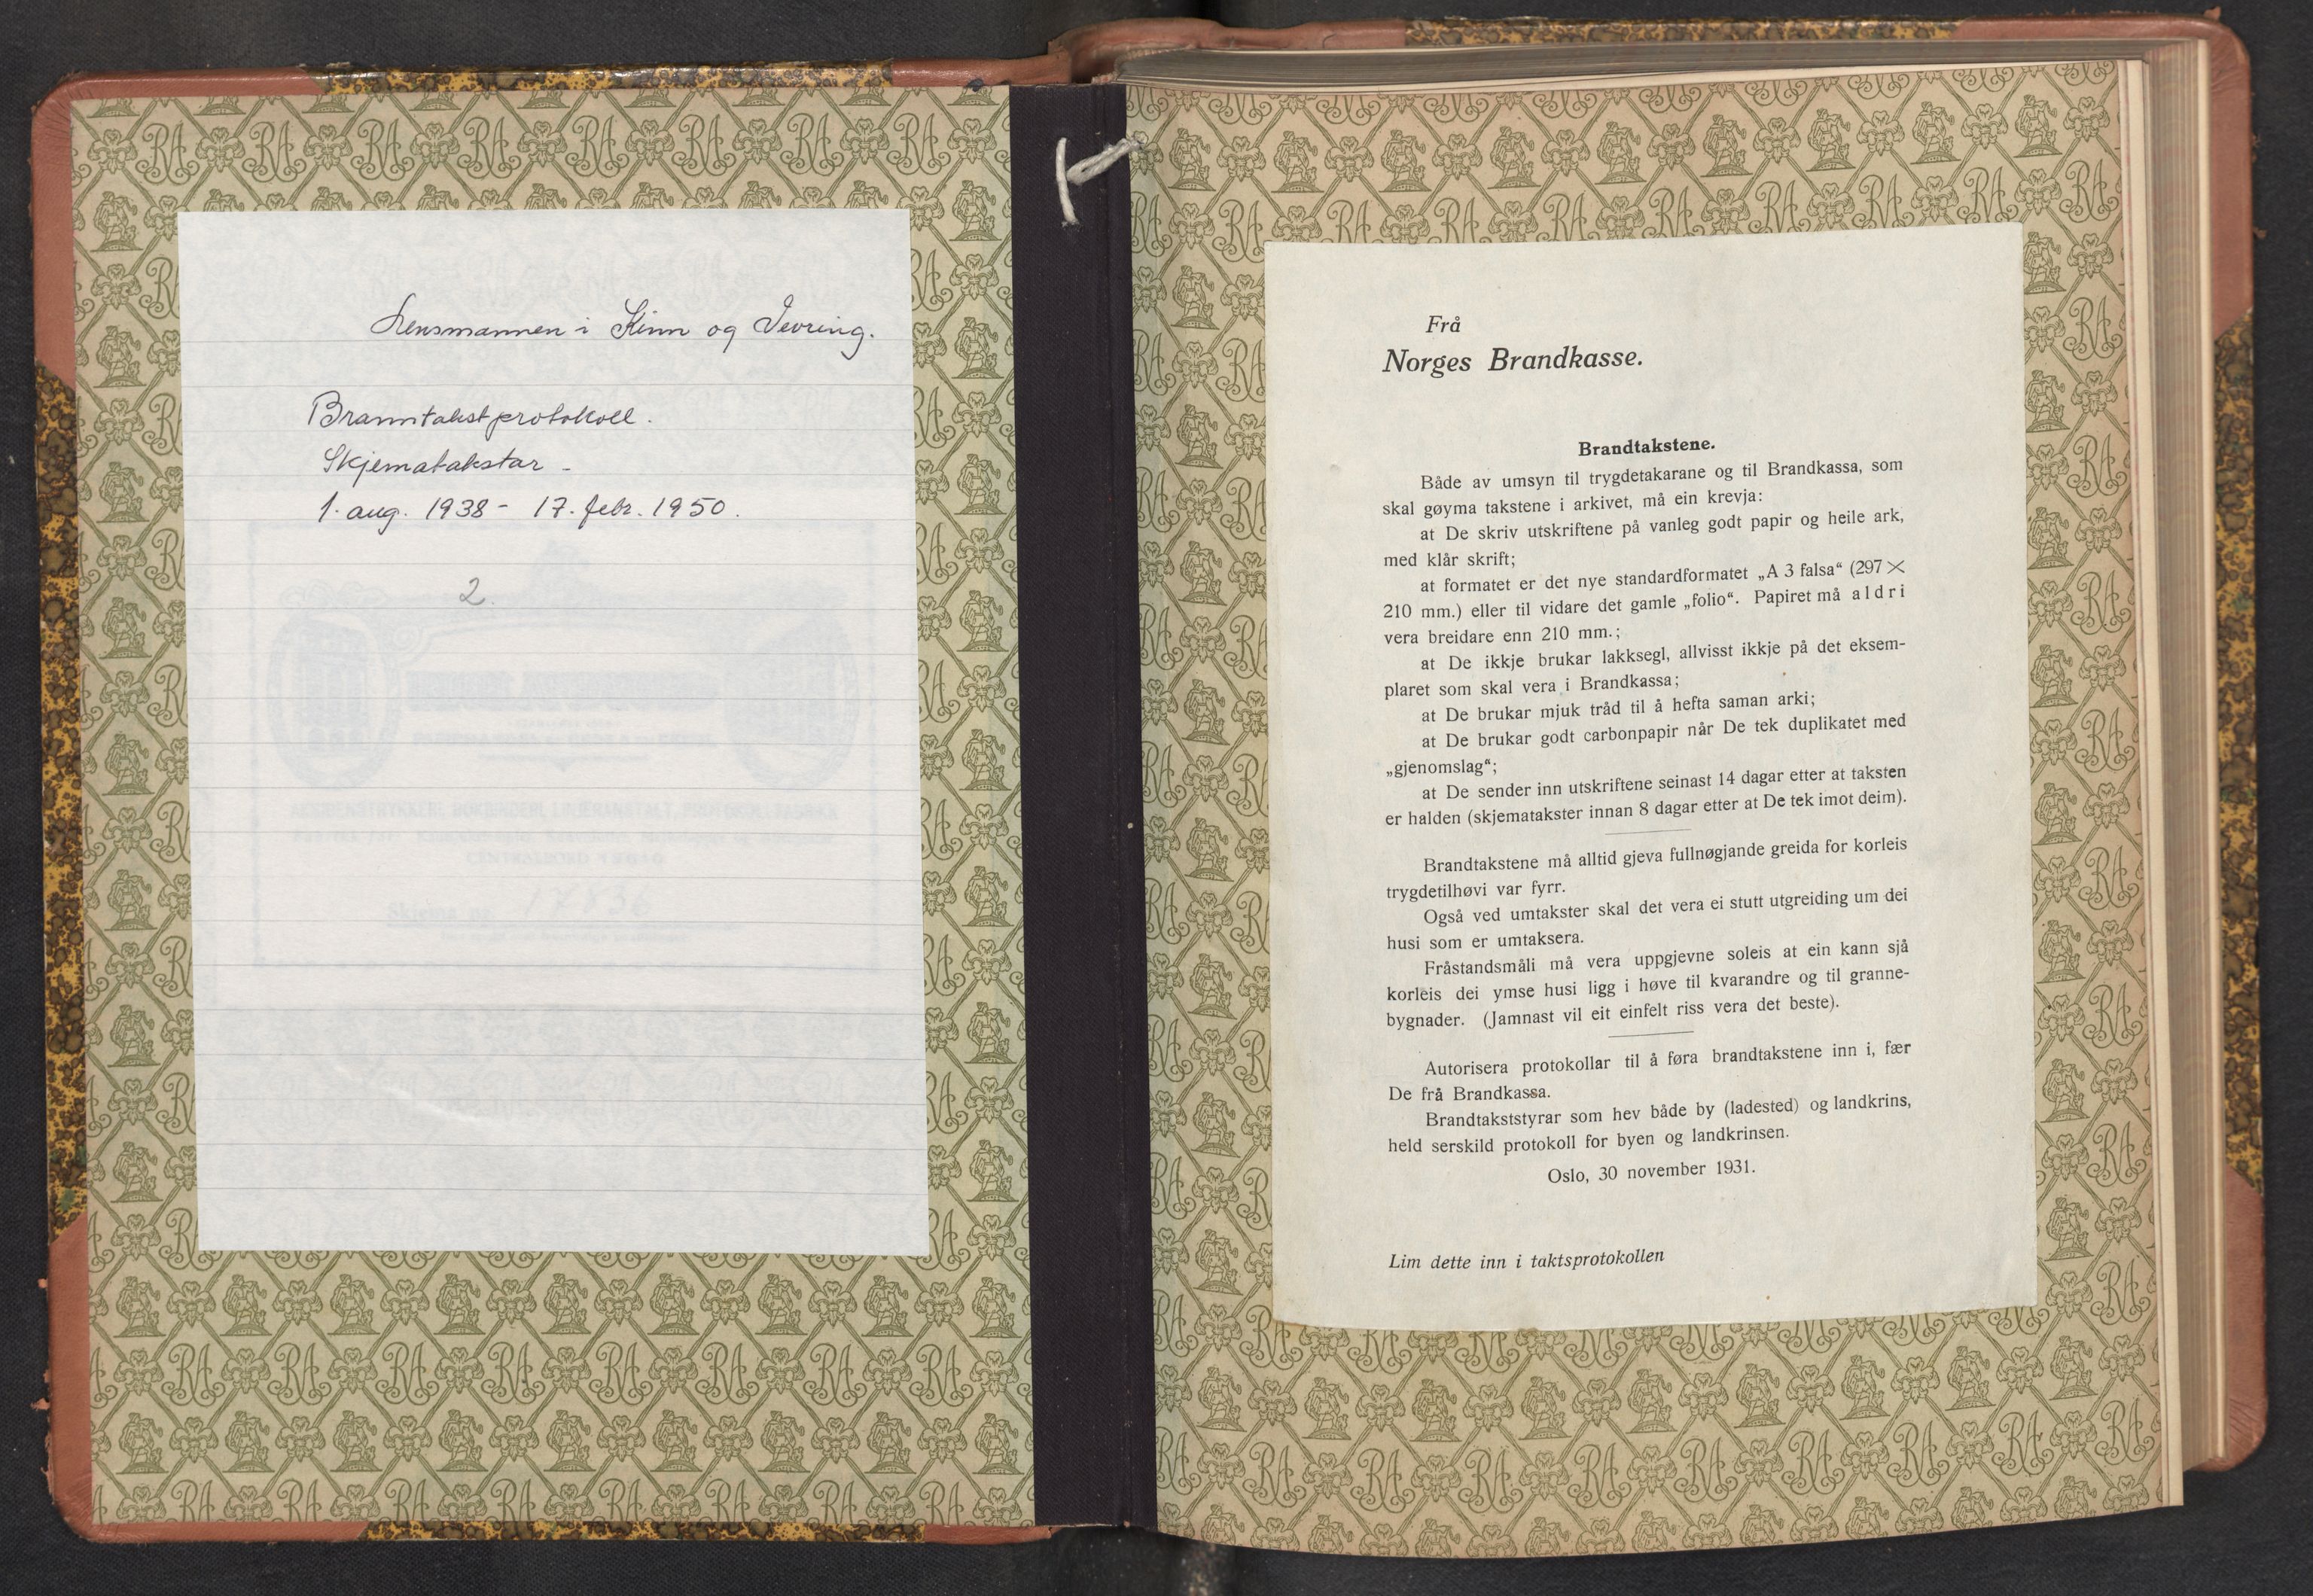 Lensmannen i Kinn og Jevring.
Branntakstprotokoll.
Skjematakstar -
1. aug. 1938 - 17. febr. 1950.
2.
17836
Frå
Norges Brandkasse.
Brandtakstene.
Både av umsyn til trygdetakarane og til Brandkassa, som
skal gøyma takstene i arkivet, må ein krevja:
at De skriv utskriftene på vanleg godt papir og heile ark,
med klår skrift;
at formatet er det nye standardformatet „A 3 falsa“ (297 ×
210 mm.) eller til vidare det gamle „folio“. Papiret må aldri
vera breidare enn 210 mm.;
at De ikkje brukar lakksegl, allvisst ikkje på det eksem-
plaret som skal vera i Brandkassa;
at De brukar mjuk tråd til å hefta saman arki;
at De brukar godt carbonpapir når De tek duplikatet med
„gjenomslag“;
at De sender inn utskriftene seinast 14 dagar etter at taksten
er halden (skjematakster innan 8 dagar etter at De tek imot deim).
Brandtakstene må alltid gjeva fullnøgjande greida for korleis
trygdetilhøvi var fyrr.
Også ved umtakster skal det vera ei stutt utgreiding um dei
husi som er umtaksera.
Fråstandsmåli må vera uppgjevne soleis at ein kann sjå
korleis dei ymse husi ligg i høve til kvarandre og til granne-
bygnader. (Jamnast vil eit einfelt riss vera det beste).
Autorisera protokollar til å føra brandtakstene inn i, fær
De frå Brandkassa.
Brandtakststyrar som hev både by (ladested) og landkrins,
held serskild protokoll for byen og landkrinsen.
Oslo, 30 november 1931.
Lim dette inn i taktsprotokollen